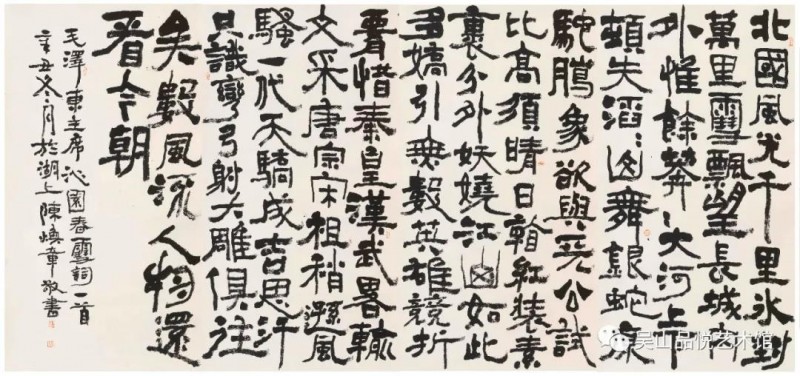 北國風光千里冰封
萬里雪飄望長城內
外惟餘莽〻大河上下
頓失滔〻山舞銀蛇原
馳臘象欲與天公試
比高須晴日看紅裝素
裹分外妖嬈江山如此
多嬌引無數英雄競折
腰惜秦皇漢武畧輸
文采唐宗宋祖稍遜風
騷一代天驕成吉思汗
只識彎弓射大雕俱往
矣數風流人物還
看今朝
毛澤東主席沁園春雪詞一首
辛丑冬月於湖上陳煥章敬書
吴山品悦艺术馆